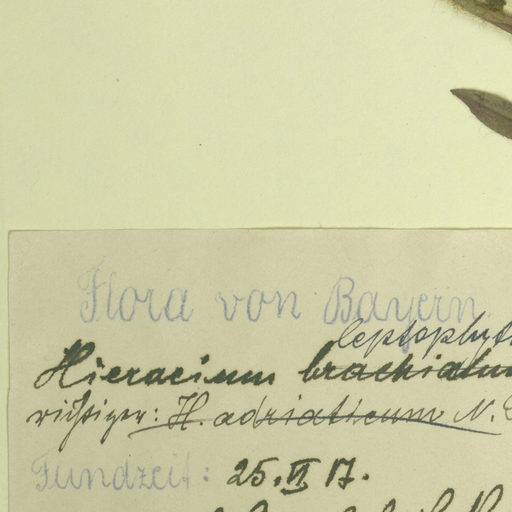 Flora von Bayern
leptophyt
Hieracium brachiatum
richtiger: H. adriaticum N.
Fundzeit: 25. VI 17.